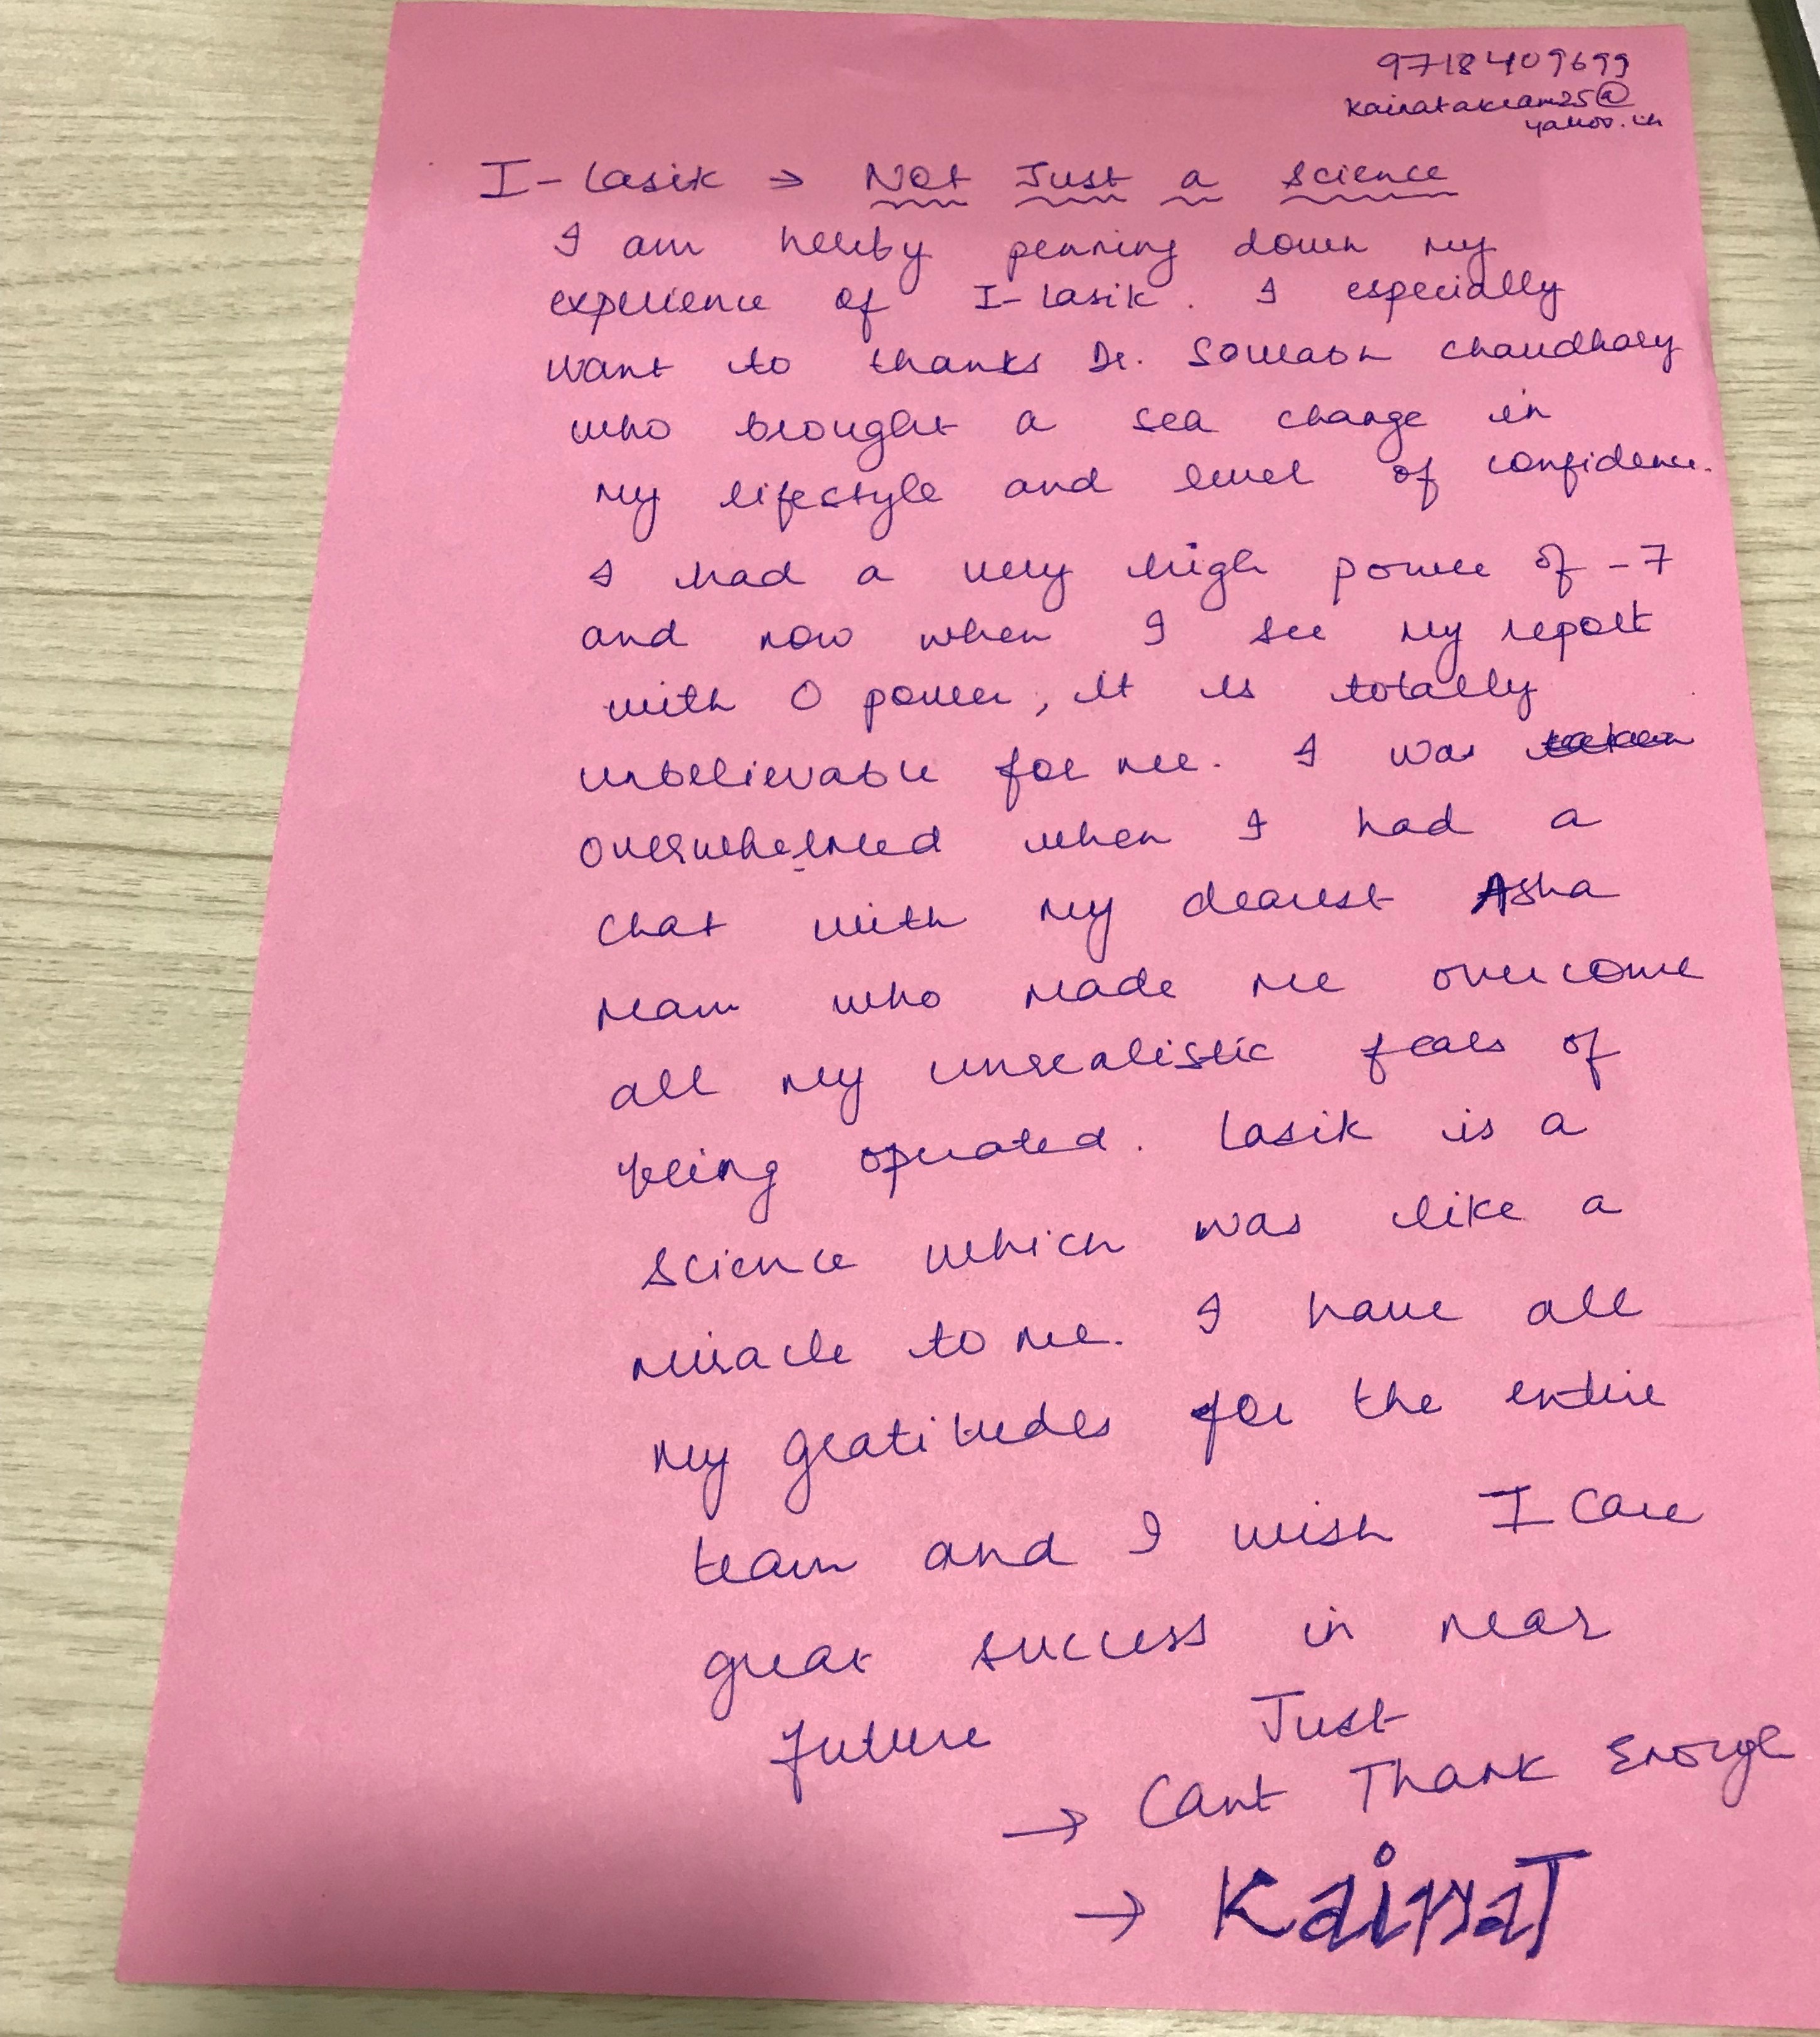 9718409699
kainatakram25@
yahoo.in
I-Lasik → Not Just a Science
I am hereby penning down my
experience of I-Lasik. I especially
want to thanks Dr. Sourabh Chaudhary
who brought a sea change in
my lifestyle and level of confidence.
I had a very high power of -7
and now when I see my report
with 0 power, it is totally
unbelievable for me. I was
overwhelmed when I had a
chat with my dearest Asha
mam who made me overcome
all my unrealistic fears of
being operated. Lasik is a
science which was like a
miracle to me. I have all
my gratitudes for the entire
team and I wish I Care
great success in near
future
Just
→ Cant Thank Enough
→ KainaT